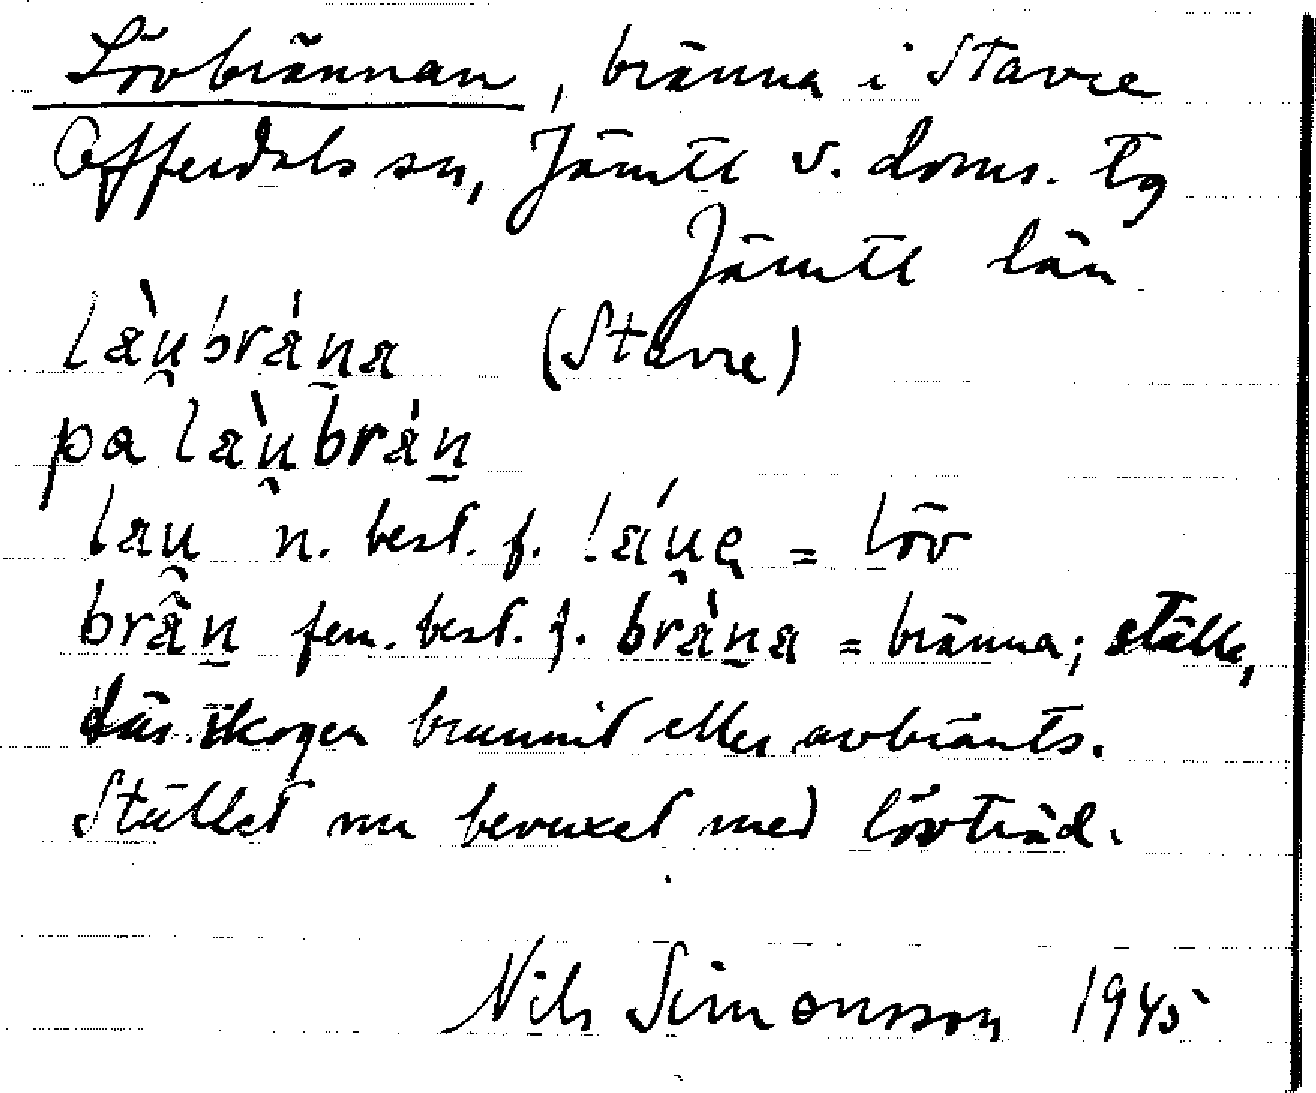 Lövbrännan, bränna i Stavre
Offerdals sn, Jämtl v. doms. tg
Jämtl län
làu̯bráṉa (Stavre)
pa làu̯bráṉ
lau̯ n. best. f. láu̯ę = löv
brâṉ fem. best. f. bràṉa = bränna; ställe,
där skogen brunnit eller avbränts.
Stället nu bevuxet med lövträd.
Nils Simonsson 1945